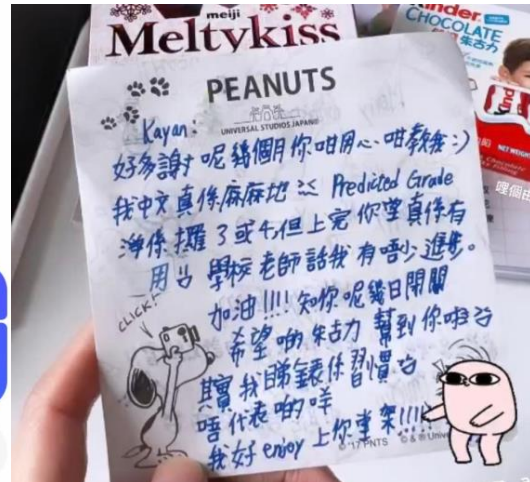 meiji
Meltykiss
Kinder
CHOCOLATE
朱古力
NET WEIGHT
PEANUTS
UNIVERSAL STUDIOS JAPAN®
Kayan:
好多謝呢幾個月你咁用心咁教我:)
我中文真係麻麻地 Predicted Grade
淨係攞3或4,但上完你堂真係有
用 學校老師話我有唔少進步。
加油!!!! 知你呢幾日閉關
希望啲朱古力幫到你啦
CLICK!
其實我睇錶係習慣
唔代表啲咩
我好enjoy上你堂架!!!!
©'17 PNTS © & ® Univer